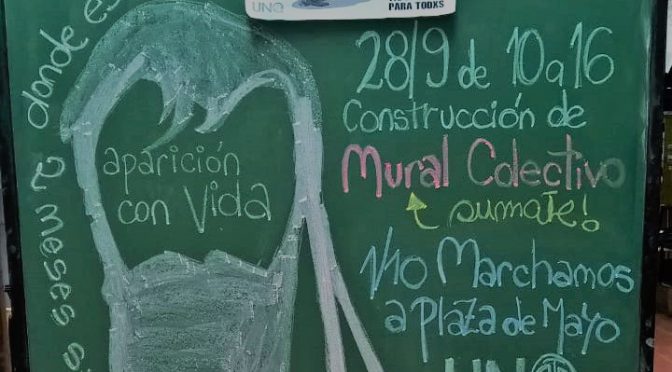 UNQ
PARA TODXS
28/9 de 10 a 16
Construcción de
Mural Colectivo
sumate!
1/10 Marchamos
a Plaza de Mayo
UNQ
aparición
con Vida
2 meses s
donde es